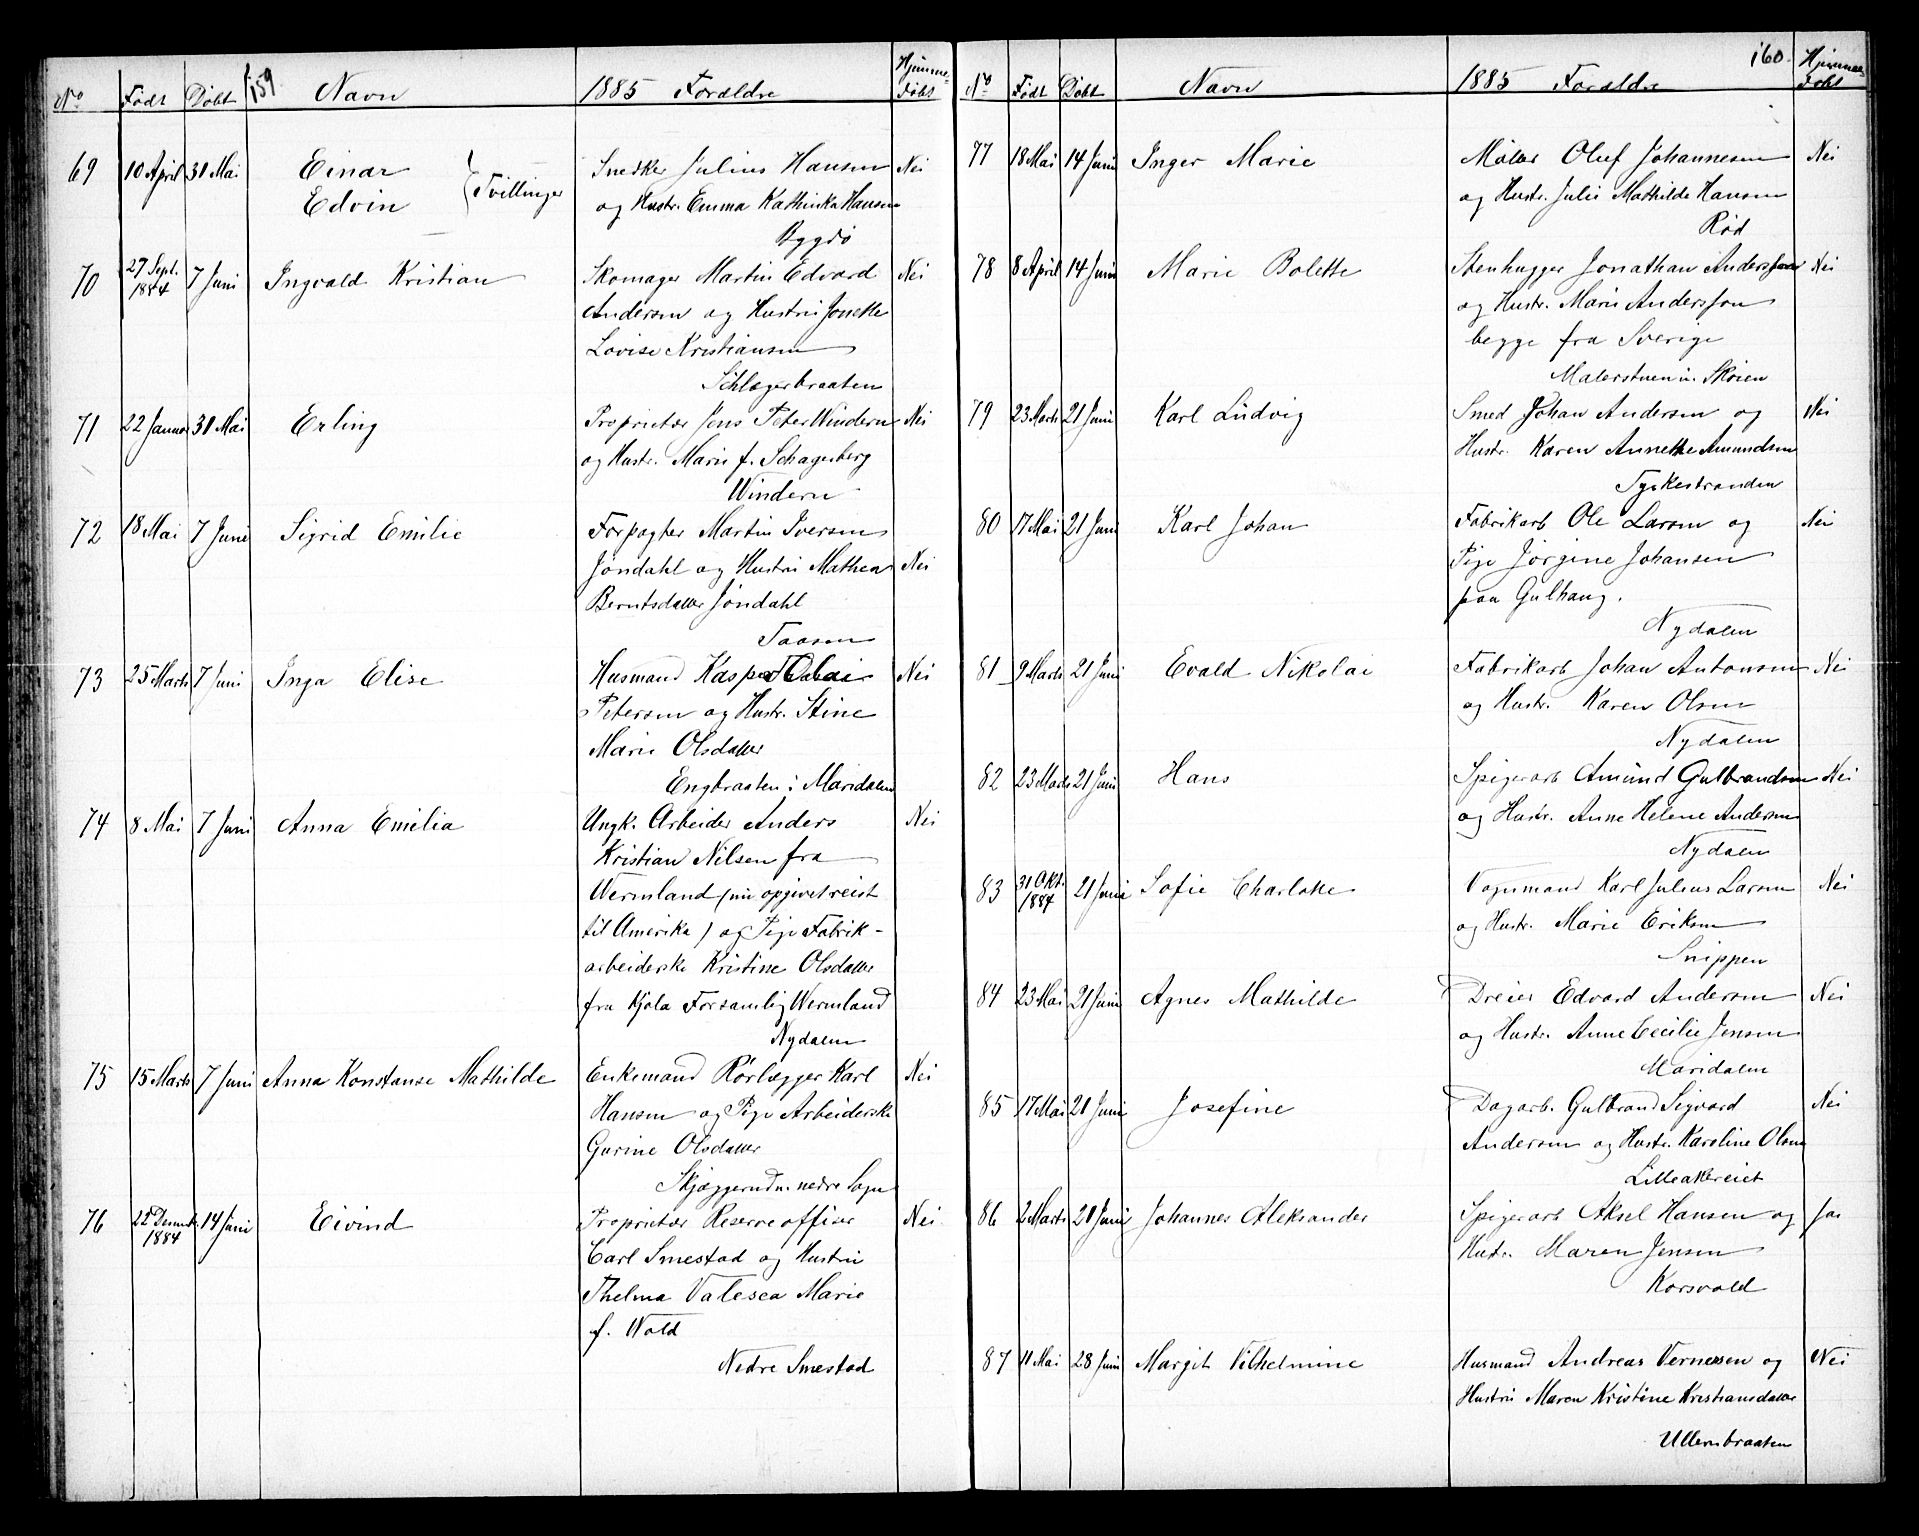 159.
No Født Døbt Navn 1885 Forældre Hjemme-
døbt
69 10 April 31 Mai Einar Snedker Julius Hansen Nei
Edvin Tvillinger og Hustr. Emma Kathinka Hansen
Bygdø
70 27 Sept. 1884 7 Juni Ingvald Kristian Skomager Martin Edvard Nei
Andersen og Hustru Jonette
Lovise Kristiansen
Schlagerbraaten
71 22 Januar 31 Mai Erling Proprietær Jens Peter Windern Nei
og Hustr. Marie f. Schagerberg
Windern
72 18 Mai 7 Juni Sigrid Emilie Forpagter Martin Iversen
Jøndahl og Hustru Mathea Nei
Berntsdatter Jøndahl
Taasen
73 25 Marts 7 Juni Inga Elise Husmand Kasper Nei
Petersen og Hustr. Stine
Marie Olsdatter
Engbraaten i Maridalen
74 8 Mai 7 Juni Anna Emilia Ungk. Arbeider Anders Nei
Kristian Nilsen fra
Wermland (nu opgivet reist
til Amerika) og Pige Fabrik-
arbeiderske Kristine Olsdatter
fra Kjøla Forsamling Wermland
Nydalen
75 15 Marts 7 Juni Anna Konstanse Mathilde Enkemand Rørlægger Karl Nei
Hansen og Pige Arbeiderske
Gurine Olsdatter
Skjæggerud n. nedre Sogn
76 22 Decemb. 1884 14 Juni Eivind Proprietær Reserveofficer Nei
Carl Smestad og Hustru
Thelma Valesca Marie
f. Wold
Nedre Smestad
160.
No Født Døbt Navn 1885 Forældre Hjemme-
døbt
77 18 Mai 14 Juni Inger Marie Maler Oluf Johannesen Nei
og Hustr. Julie Mathilde Hansen
Rød
78 8 April 14 Juni Marie Bolette Stenhugger Jonathan Andersson Nei
og Hustr. Marie Andersson
begge fra Sverige
Malerstuen u. Skøien
79 23 Marts 21 Juni Karl Ludvig Smed Johan Andersen og Nei
Hustr. Karen Annette Amundsen
Tyskestranden
80 17 Mai 21 Juni Karl Johan Fabrikarb Ole Larsen og Nei
Pige Jørgine Johansen
paa Gulhaug.
Nydalen
81 9 Marts 21 Juni Evald Nikolai Fabrikarb Johan Antonsen Nei
og Hustr. Karen Olsen
Nydalen
82 23 Marts 21 Juni Hans Spigerarb Amund Gulbrandsen Nei
og Hustr. Anne Helene Andersen
Nydalen
83 31 Okt. 1884 21 Juni Sofie Charlotte Vognmand Karl Julius Larsen Nei
og Hustr. Marie Eriksen
Snippen
84 23 Mai 21 Juni Agnes Mathilde Dreier Edvard Andersen Nei
og Hustr. Anne Cecilie Jensen
Maridalen
85 17 Mai 21 Juni Josefine Dagarb. Gulbrand Sigvard Nei
Andersen og Hustr. Karoline Olsen
Lilleakereiet
86 2 Marts 21 Juni Johannes Aleksander Spigerarb Aksel Hansen og Ja
Hustr. Maren Jensen
Korsvold
87 11 Mai 28 Juni Margit Vilhelmine Husmand Andreas Vernessen og Nei
Hustru Maren Kristine Kristiansdatter
Ullernbraaten